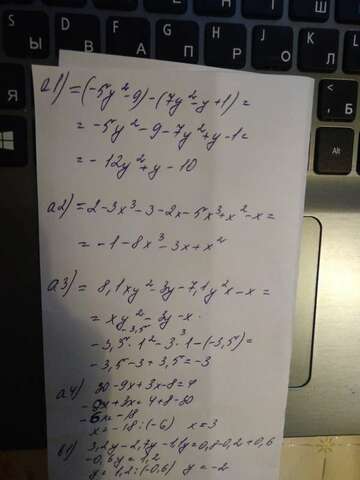 S Ы D В F А G П H Р J О K Л L Д
Я Б
Alt
a1) = (-5y²-9)-(7y²-y+1)=
= -5y²-9-7y²+y-1=
= -12y²+y-10
a2) = 2-3x³-3-2x-5x³+x²-x=
= -1-8x³-3x+x²
a3) = 8,1xy²-3y-7,1y²x-x=
= xy²-3y-x.
-3,5
-3,5·1²-3·1-(-3,5)=
-3,5-3+3,5=-3
a4) 30-9x+3x-8=4
-9x+3x=4+8-30
-6x=-18
x=-18:(-6) x=3
в1) 3,2y-2,7y-1,1y=0,8-0,2+0,6
-0,6y=1,2
y=1,2:(-0,6) y=-2